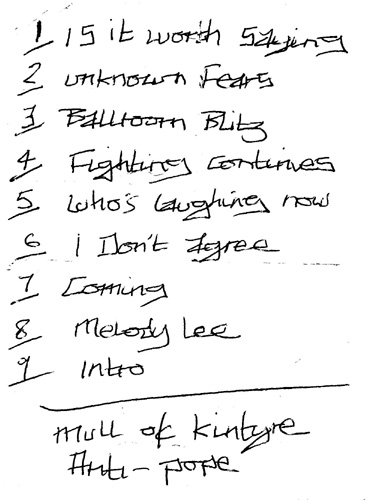 1 IS it worth Saying
2 unknown Fears
3 Ballroom Blitz
4 Fighting continues
5 Who's laughing now
6 I Don't Agree
7 Coming
8 Melody Lee
9 Intro
Mull of kintyre
Anti-pope